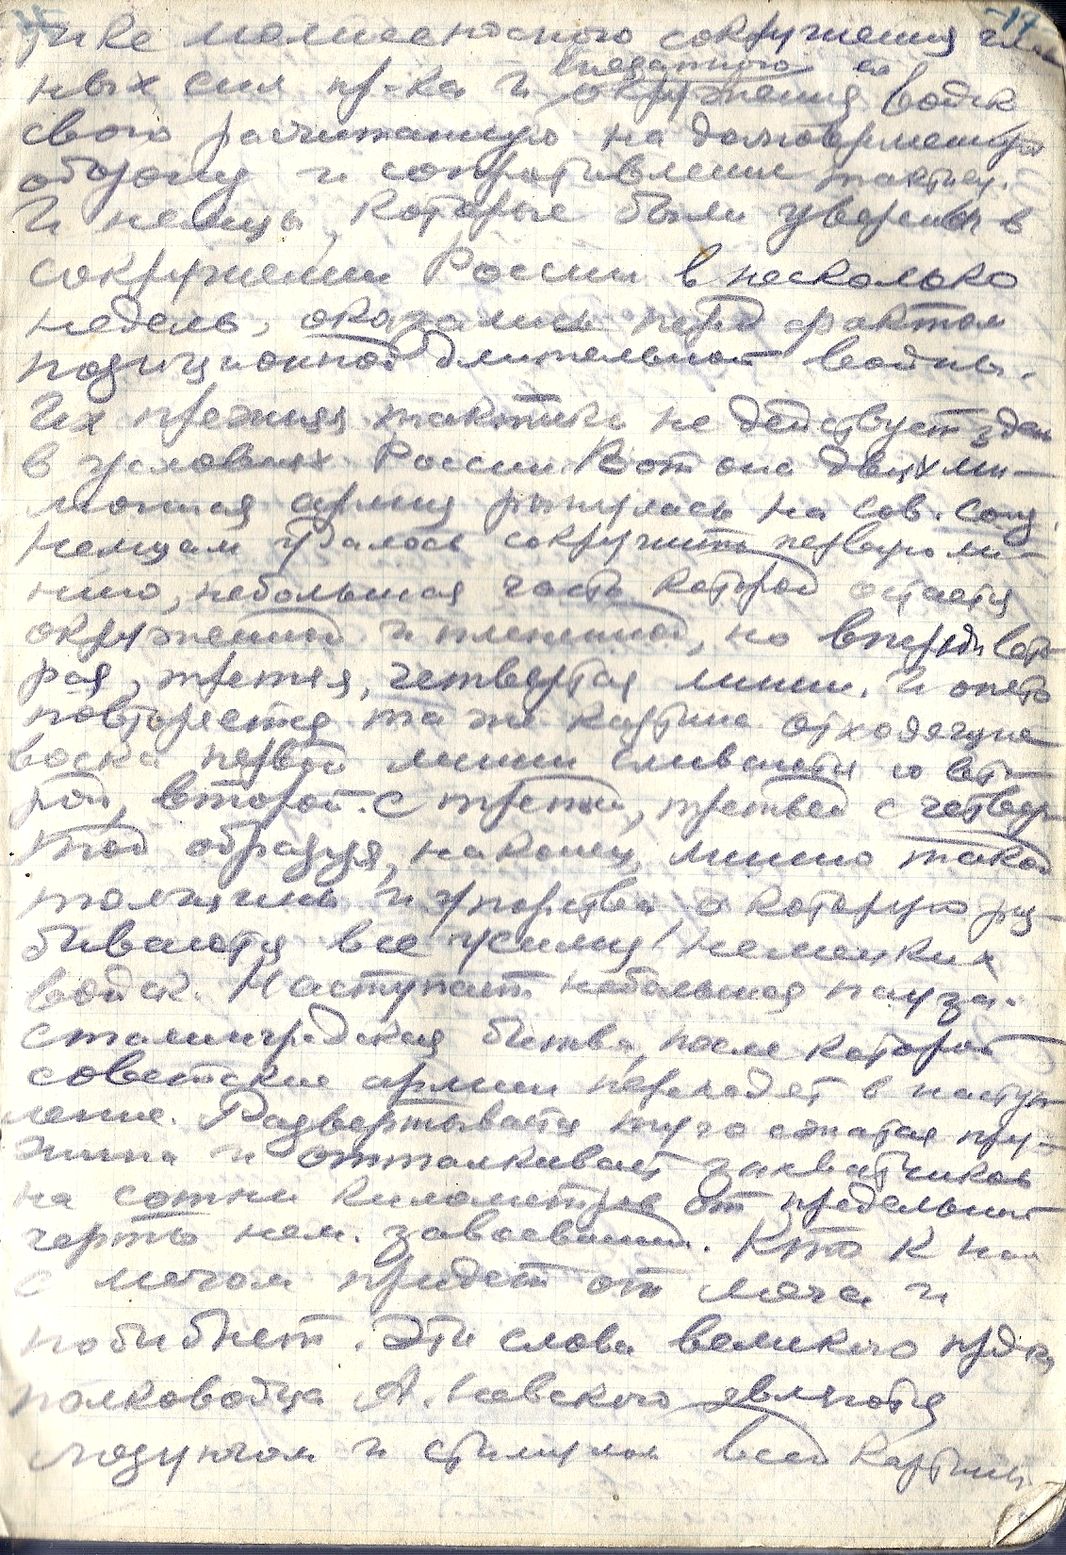 -17
тике молниеносного сокрушения глав
ных сил пр-ка и внезапного окружения ея войск
свою расчитанную на долговременную
оборону и сопротивление тактику.
И немцы, которые были уверены в
сокрушении России в несколько
недель, оказались перед фактом
позиционной длительной войны.
Их прежняя тактика не действует здесь
в условиях России. Вот она двухми-
лионная армия рынулась на Сов. Союз.
Немцам удалось сокрушить первую ли-
нию, небольшая часть которой остается
окруженной и плененной, но впереди вто-
рая, третья, четвертая линии. И опять
повторяется та же картина отходящие
воска первой линии сливаются со вто-
рой, второй с третьей, третьей с четвер-
той образуя, наконец, линию такой
толщины и упорства о которую раз-
биваются все усилия немецких
войск. Наступает небольшая пауза.
Сталинградская битва, после которой
советские армии переходят в наступ-
ление. Развертывается туго сжатая пру-
жина и отталкивает захватчиков
на сотни километров от предельной
черты нем. завоеваний. Кто к нам
с мечом придет от меча и
погибнет. Эти слова великого предка
полководца А. Невского являются
лозунгом и стимулом всей картины